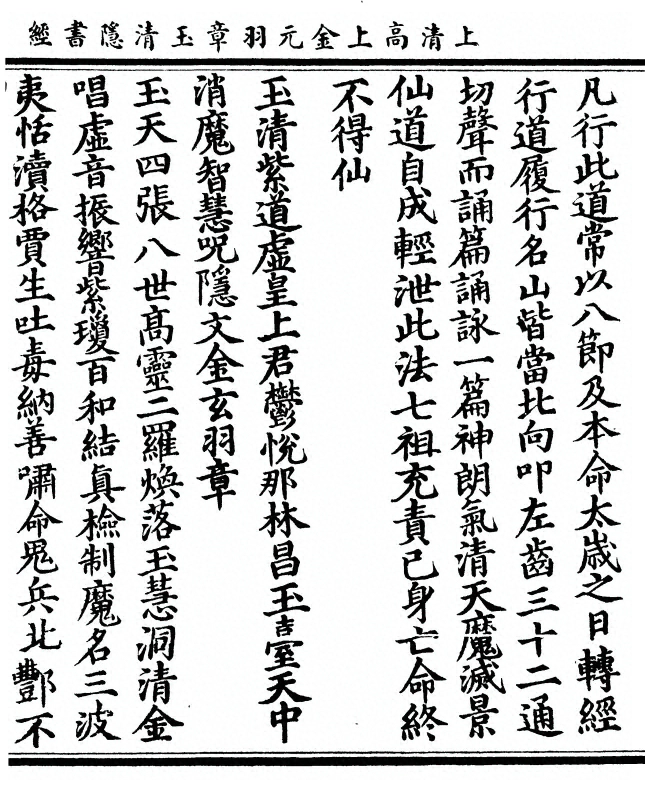 上清高上金元羽章玉清隱書經
凡行此道常以八節及本命太歳之日轉經
行道履行名山皆當北向叩左齒三十二通
切聲而誦篇誦詠一篇神朗氣清天魔滅景
仙道自成輕泄此法七祖充責己身亡命終
不得仙
玉清紫道虛皇上君鬱悅那林昌玉臺天中
消魔智慧呪隱文金玄羽章
玉天四張八世高靈二羅煥落玉慧洞清金
唱虛音振響紫瓊百和結眞檢制魔名三波
夷恬瀆格賈生吐毒納善嘯命鬼兵北酆不